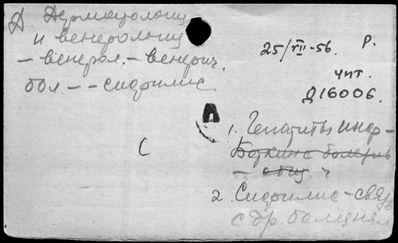 Д Дерматологи
и венерологи
– венерол. – венерич.
бол – – сифилис
25/VII-56. Р.
чит.
Д16006.
С
1. Гепатиты инф –
Боткина болезнь
– общ.
2. Сифилис – связь
с др. болезням